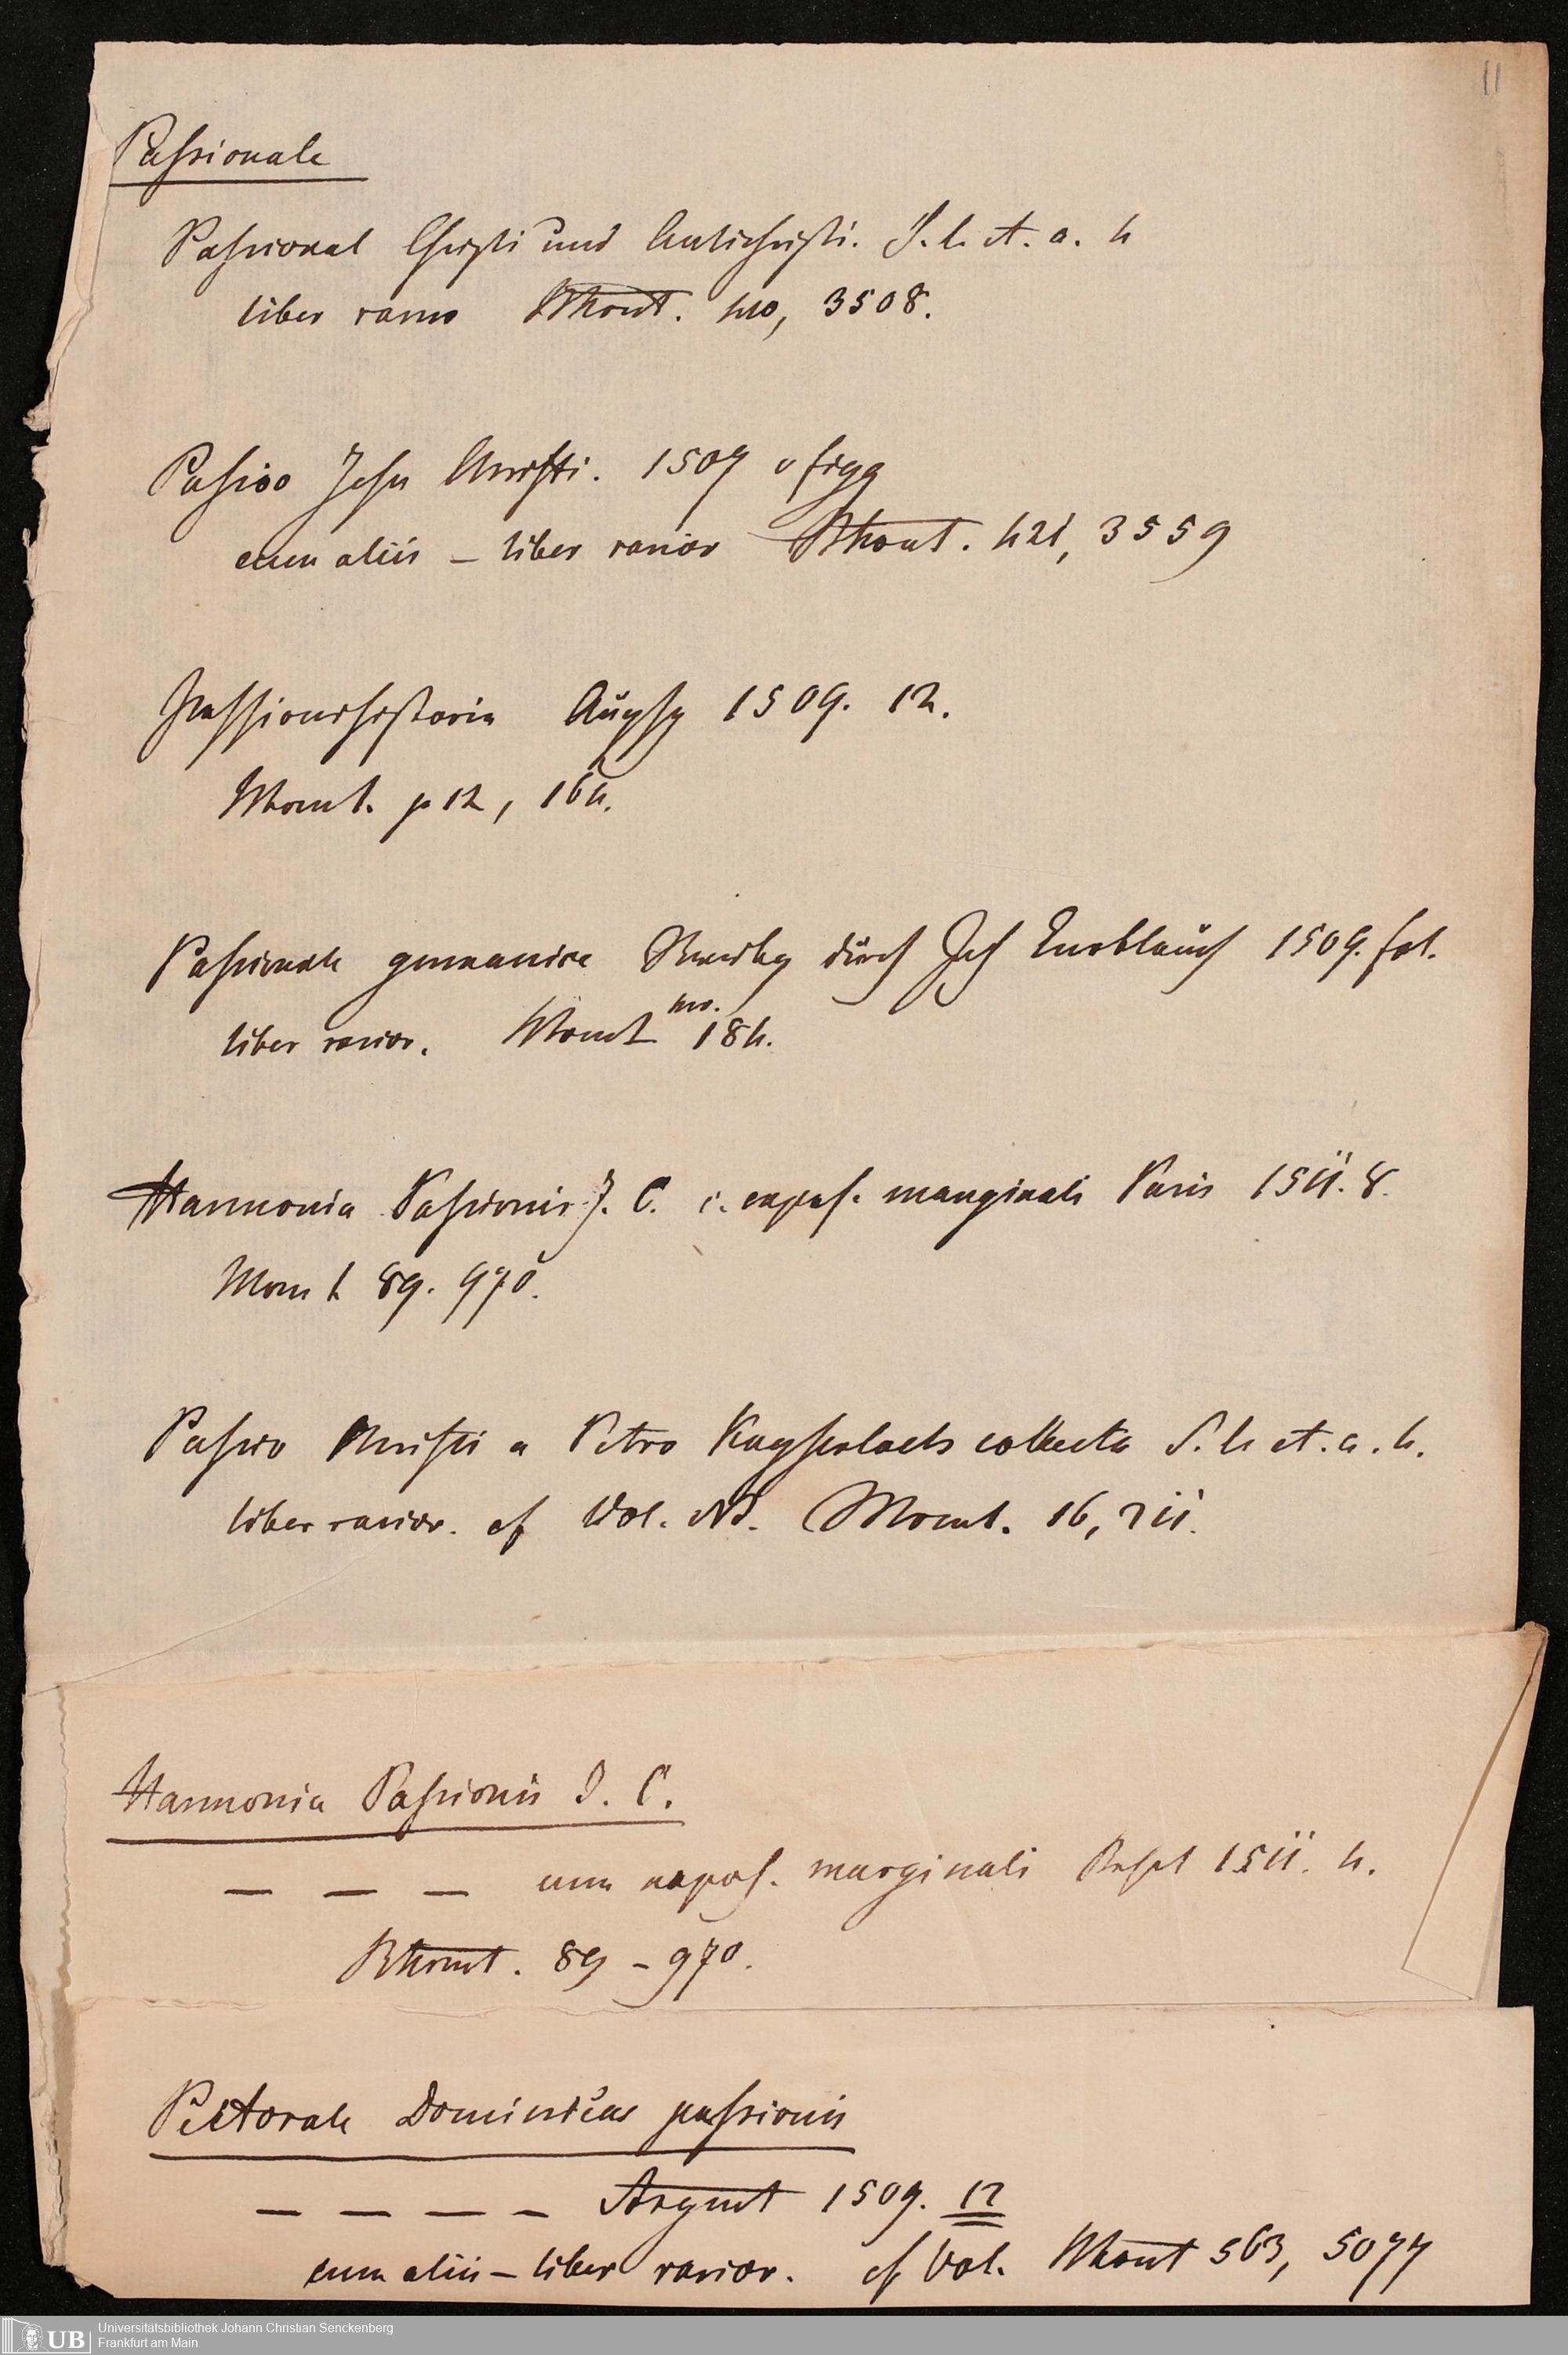 11
Passionale
Passional Christi und Antichristi. S. l. et. a. 4
liber rarus 3508.
Passio Jesu Christi. 1507 c figg
cum aliis – liber rarior 421, 3559
Passionshistoria Augsp 1509. 12.
p 12, 164.
Passionale germanice Strasbg durch Joh Knoblauch 1509. fol.
liber rarior. 184.
Harmonia Passionis J. C. c. expos. marginali Paris 1511. 8.
89. 970.
Passio Christi a Petro collecta S. l. et. a. 4.
liber rarior. cf Vol. 16, 711.
Harmonia Passionis J. C.
– – – cum expos. marginali 1511. 4.
89 – 970.
Pectorale Dominicae passionis
– – – – Argent 1509. 12
cum aliis – liber rarior. cf Vol. 563, 5077
UB Universitätsbibliothek Johann Christian Senckenberg
Frankfurt am Main